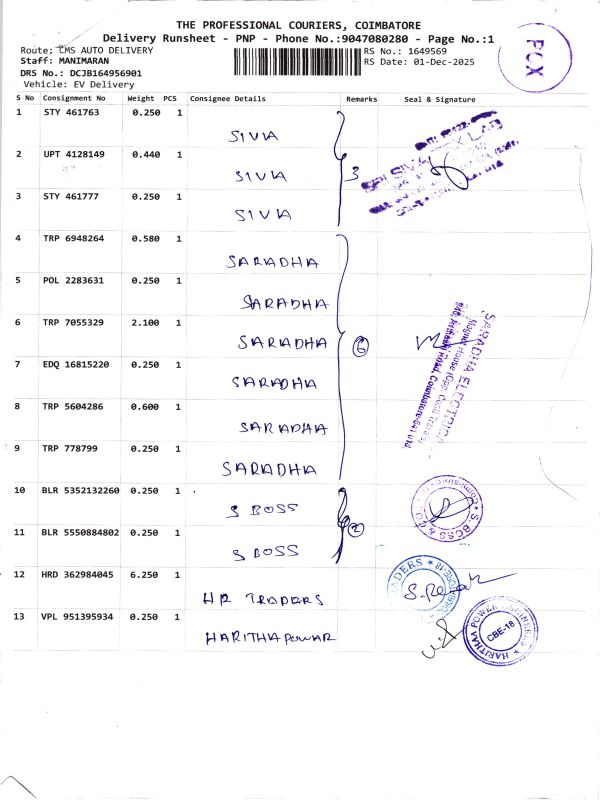 THE PROFESSIONAL COURIERS, COIMBATORE
Delivery Runsheet - PNP - Phone No.:9047080280 - Page No.:1
Route: CMS AUTO DELIVERY
RS No.: 1649569
Staff: MANIMARAN
RS Date: 01-Dec-2025
DRS No.: DCJB164956901
Vehicle: EV Delivery
PCX
S No Consignment No Weight PCS Consignee Details Remarks Seal & Signature
1 STY 461763 0.250 1 SIVIA
2 UPT 4128149 0.440 1 SIVIA 3
3 STY 461777 0.250 1 SIVIA
4 TRP 6948264 0.580 1 SARADHA
5 POL 2283631 0.250 1 SARADHA
6 TRP 7055329 2.100 1 SARADHA 6
7 EDQ 16815220 0.250 1 SARADHA
8 TRP 5604286 0.600 1 SARADHA
9 TRP 778799 0.250 1 SARADHA
SARADHA ELECTRICA
10 BLR 5352132260 0.250 1 S BOSS 2
11 BLR 5550884802 0.250 1 S BOSS
S. BOSS & CO
12 HRD 362984045 6.250 1 HR TRADERS
13 VPL 951395934 0.250 1 HARITHAPOWAR
HARITHAA POWER ENGINEERS
CBE-18